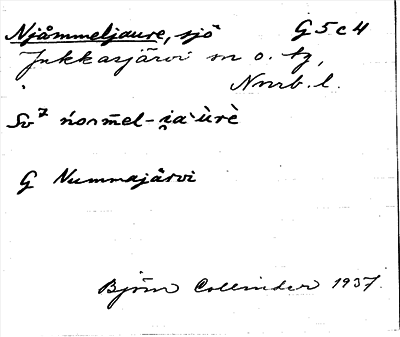 Njåmmeljaure, sjö G5c4
Jukkasjärvi sn o. tg,
Nnrb. l.
Sv⁷
G Nummajärvi
Björn Collinder 1937.